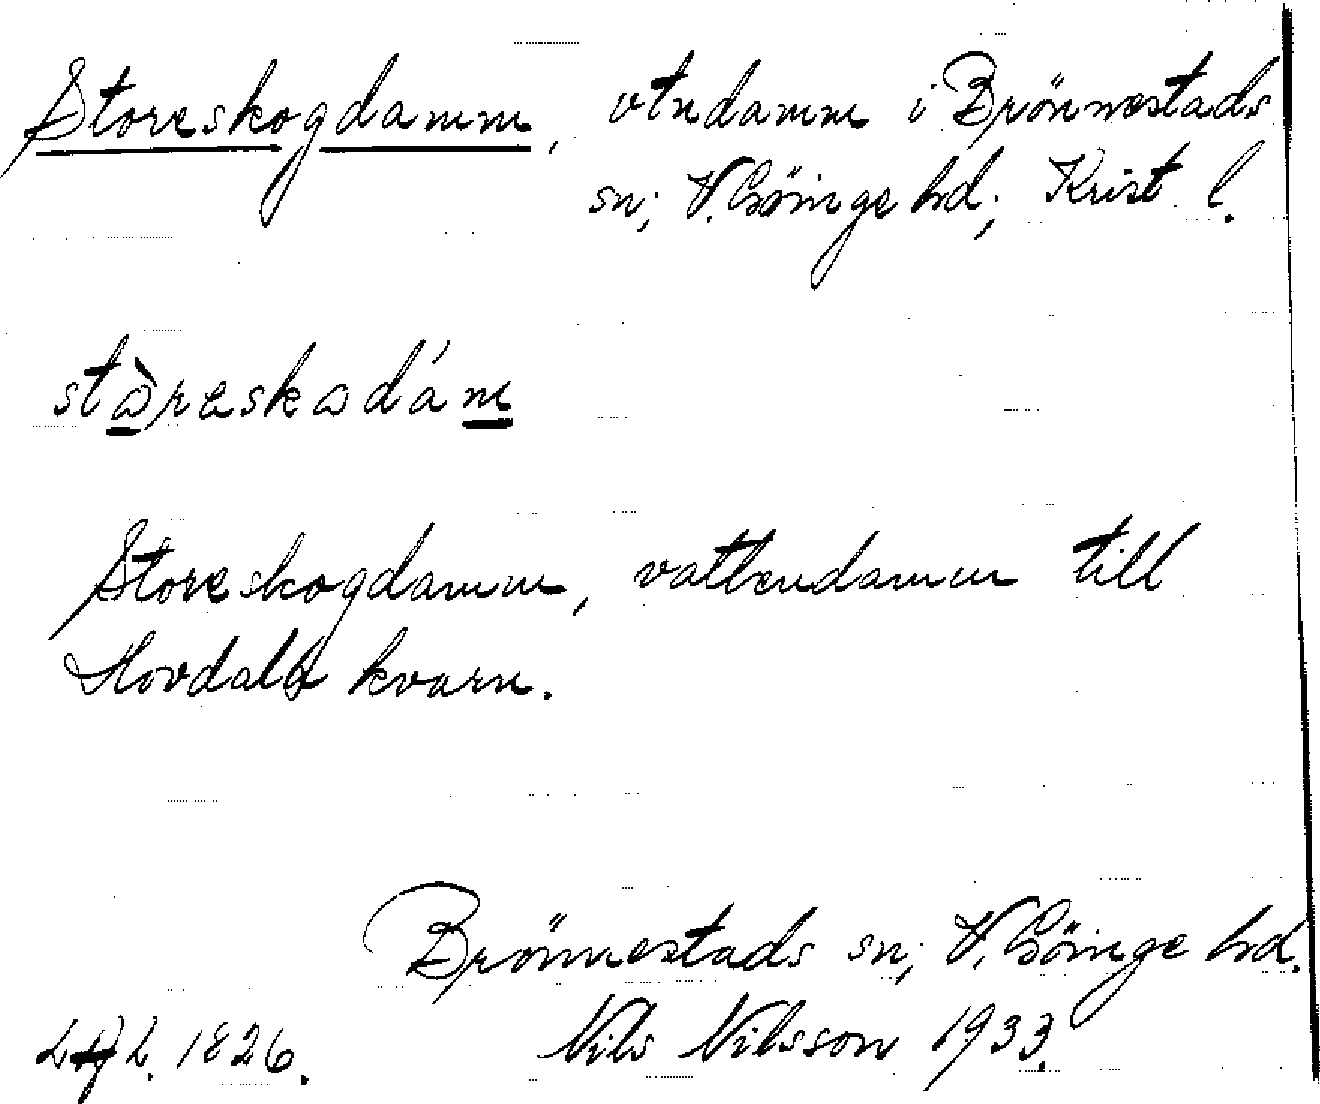 Storeskogdamm, vtndamm i Brönnestads
sn; V. Göinge hd; Krist. l.
stàreskadám
Storeskogdamm, vattendamm till
Hovdala kvarn.
Brönnestads sn; V. Göinge hd.
1826. Nils Nilsson 1933.